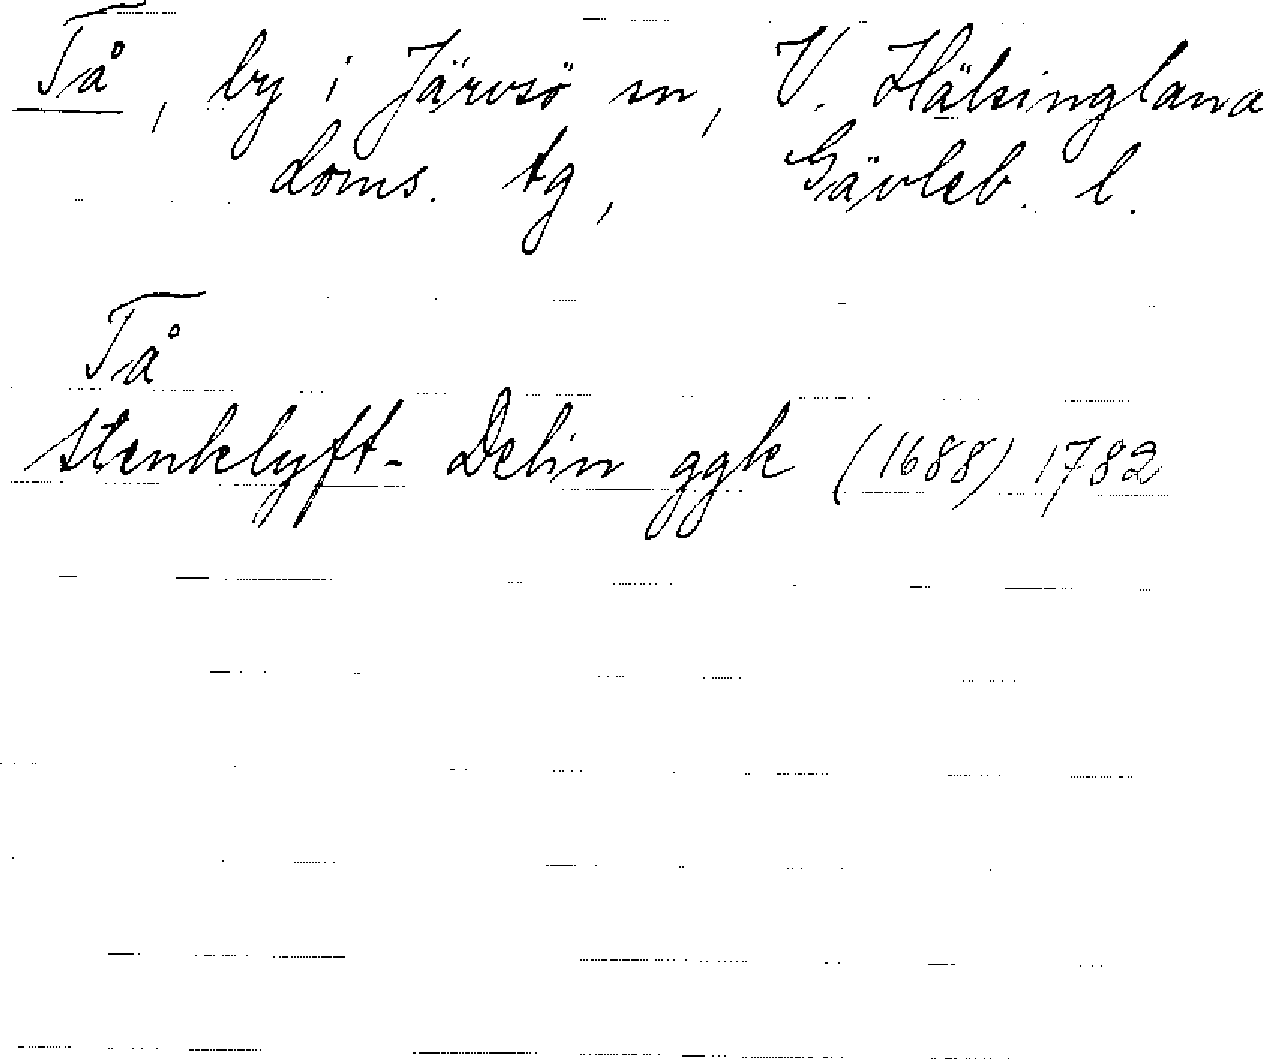 Tå, by i Järvsö sn, V. Hälsinglana
doms. tg, Gävleb. l.
Tå
Stenklyft- Delin ggk (1688) 1782